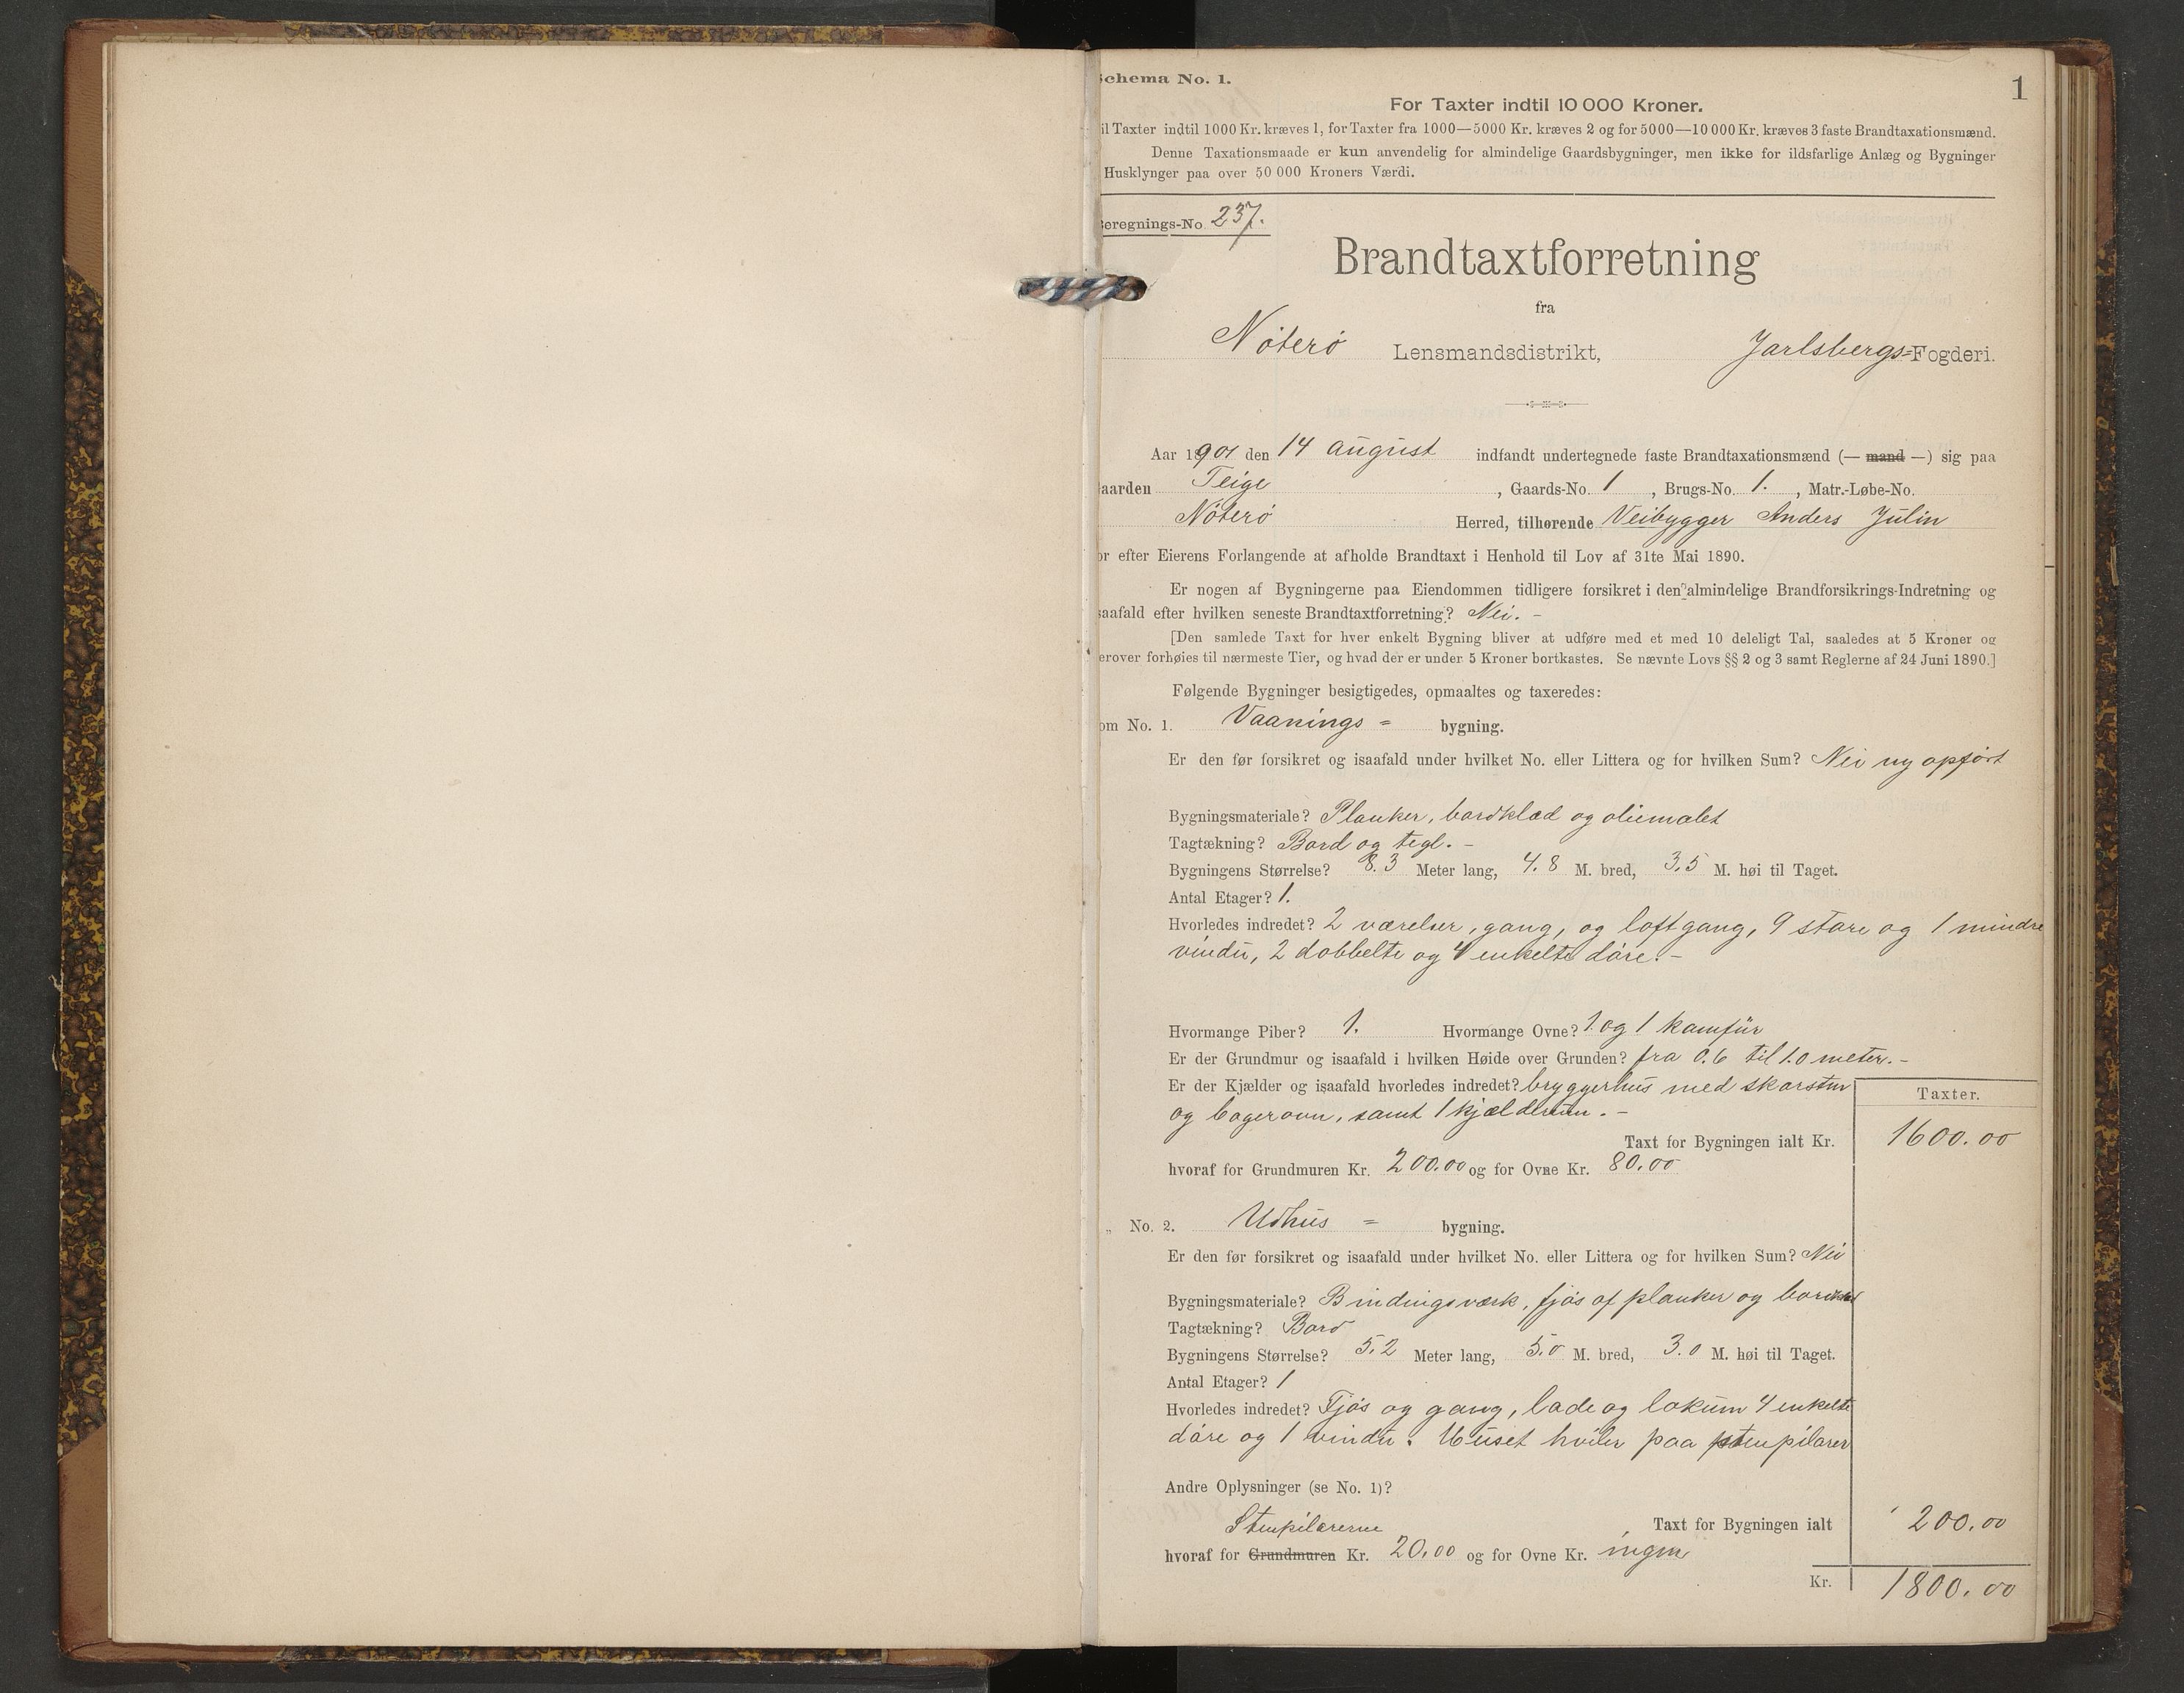 Schema No. 1.
1
For Taxter indtil 10 000 Kroner.
il Taxter indtil 1000 Kr. kræves 1, for Taxter fra 1000—5000 Kr. kræves 2 og for 5000—10 000 Kr. kræves 3 faste Brandtaxationsmænd.
Denne Taxationsmaade er kun anvendelig for almindelige Gaardsbygninger, men ikke for ildsfarlige Anlæg og Bygninger
Husklynger paa over 50 000 Kroners Værdi.
eregnings-No 237.
Brandtaxtforretning
fra
Nøterø Lensmandsdistrikt, Jarlsbergs=Fogderi.
Aar 1901 den 14 august indfandt undertegnede faste Brandtaxationsmænd (— mand —) sig paa
aarden Teige, Gaards-No. 1, Brugs-No. 1., Matr.-Løbe-No.
Nøterø Herred, tilhørende Veibygger Anders Julin
or efter Eierens Forlangende at afholde Brandtaxt i Henhold til Lov af 31te Mai 1890.
Er nogen af Bygningerne paa Eiendommen tidligere forsikret i den almindelige Brandforsikrings-Indretning og
saafald efter hvilken seneste Brandtaxtforretning? Nei. -
[Den samlede Taxt for hver enkelt Bygning bliver at udføre med et med 10 deleligt Tal, saaledes at 5 Kroner og
erover forhøies til nærmeste Tier, og hvad der er under 5 Kroner bortkastes. Se nævnte Lovs §§ 2 og 3 samt Reglerne af 24 Juni 1890.]
Følgende Bygninger besigtigedes, opmaaltes og taxeredes:
om No. 1. Vaanings = bygning.
Er den før forsikret og isaafald under hvilket No. eller Littera og for hvilken Sum? Nei ny opført
Bygningsmateriale? Planker, bordklæd og oliemalet
Tagtækning? Bord og tegl. -
Bygningens Størrelse? 8.3 Meter lang, 4.8 M. bred, 3.5 M. høi til Taget.
Antal Etager? 1.
Hvorledes indredet? 2 værelser, gang, og loftgang, 9 store og 1 mindre
vindu, 2 dobbelte og 4 enkelte døre. -
Hvormange Piber? 1. Hvormange Ovne? 1 og 1 komfür
Er der Grundmur og isaafald i hvilken Høide over Grunden? fra 0.6 til 1.0 meter. -
Er der Kjælder og isaafald hvorledes indredet? bryggerhus med skorsten
og bagerovn, samt 1 kjælderrum. -
Taxter.
Taxt for Bygningen ialt Kr. 1600.00
hvoraf for Grundmuren Kr. 200.00 og for Ovne Kr. 80.00
„ No. 2. Udhus = bygning.
Er den før forsikret og isaafald under hvilket No. eller Littera og for hvilken Sum? Nei
Bygningsmateriale? Bindingsværk, fjøs af planker og
Tagtækning? Bord
Bygningens Størrelse? 5.2 Meter lang, 5.0 M. bred, 3.0 M. høi til Taget.
Antal Etager? 1
Hvorledes indredet? Fjøs og gang, lade og lokum 4 enkelte
døre og 1 vindu. Huset hviler paa stenpilarer
Andre Oplysninger (se No. 1)?
Stenpilarerne Taxt for Bygningen ialt 200.00
hvoraf for Grundmuren Kr. 20.00 og for Ovne Kr. ingen
Kr. 1800.00